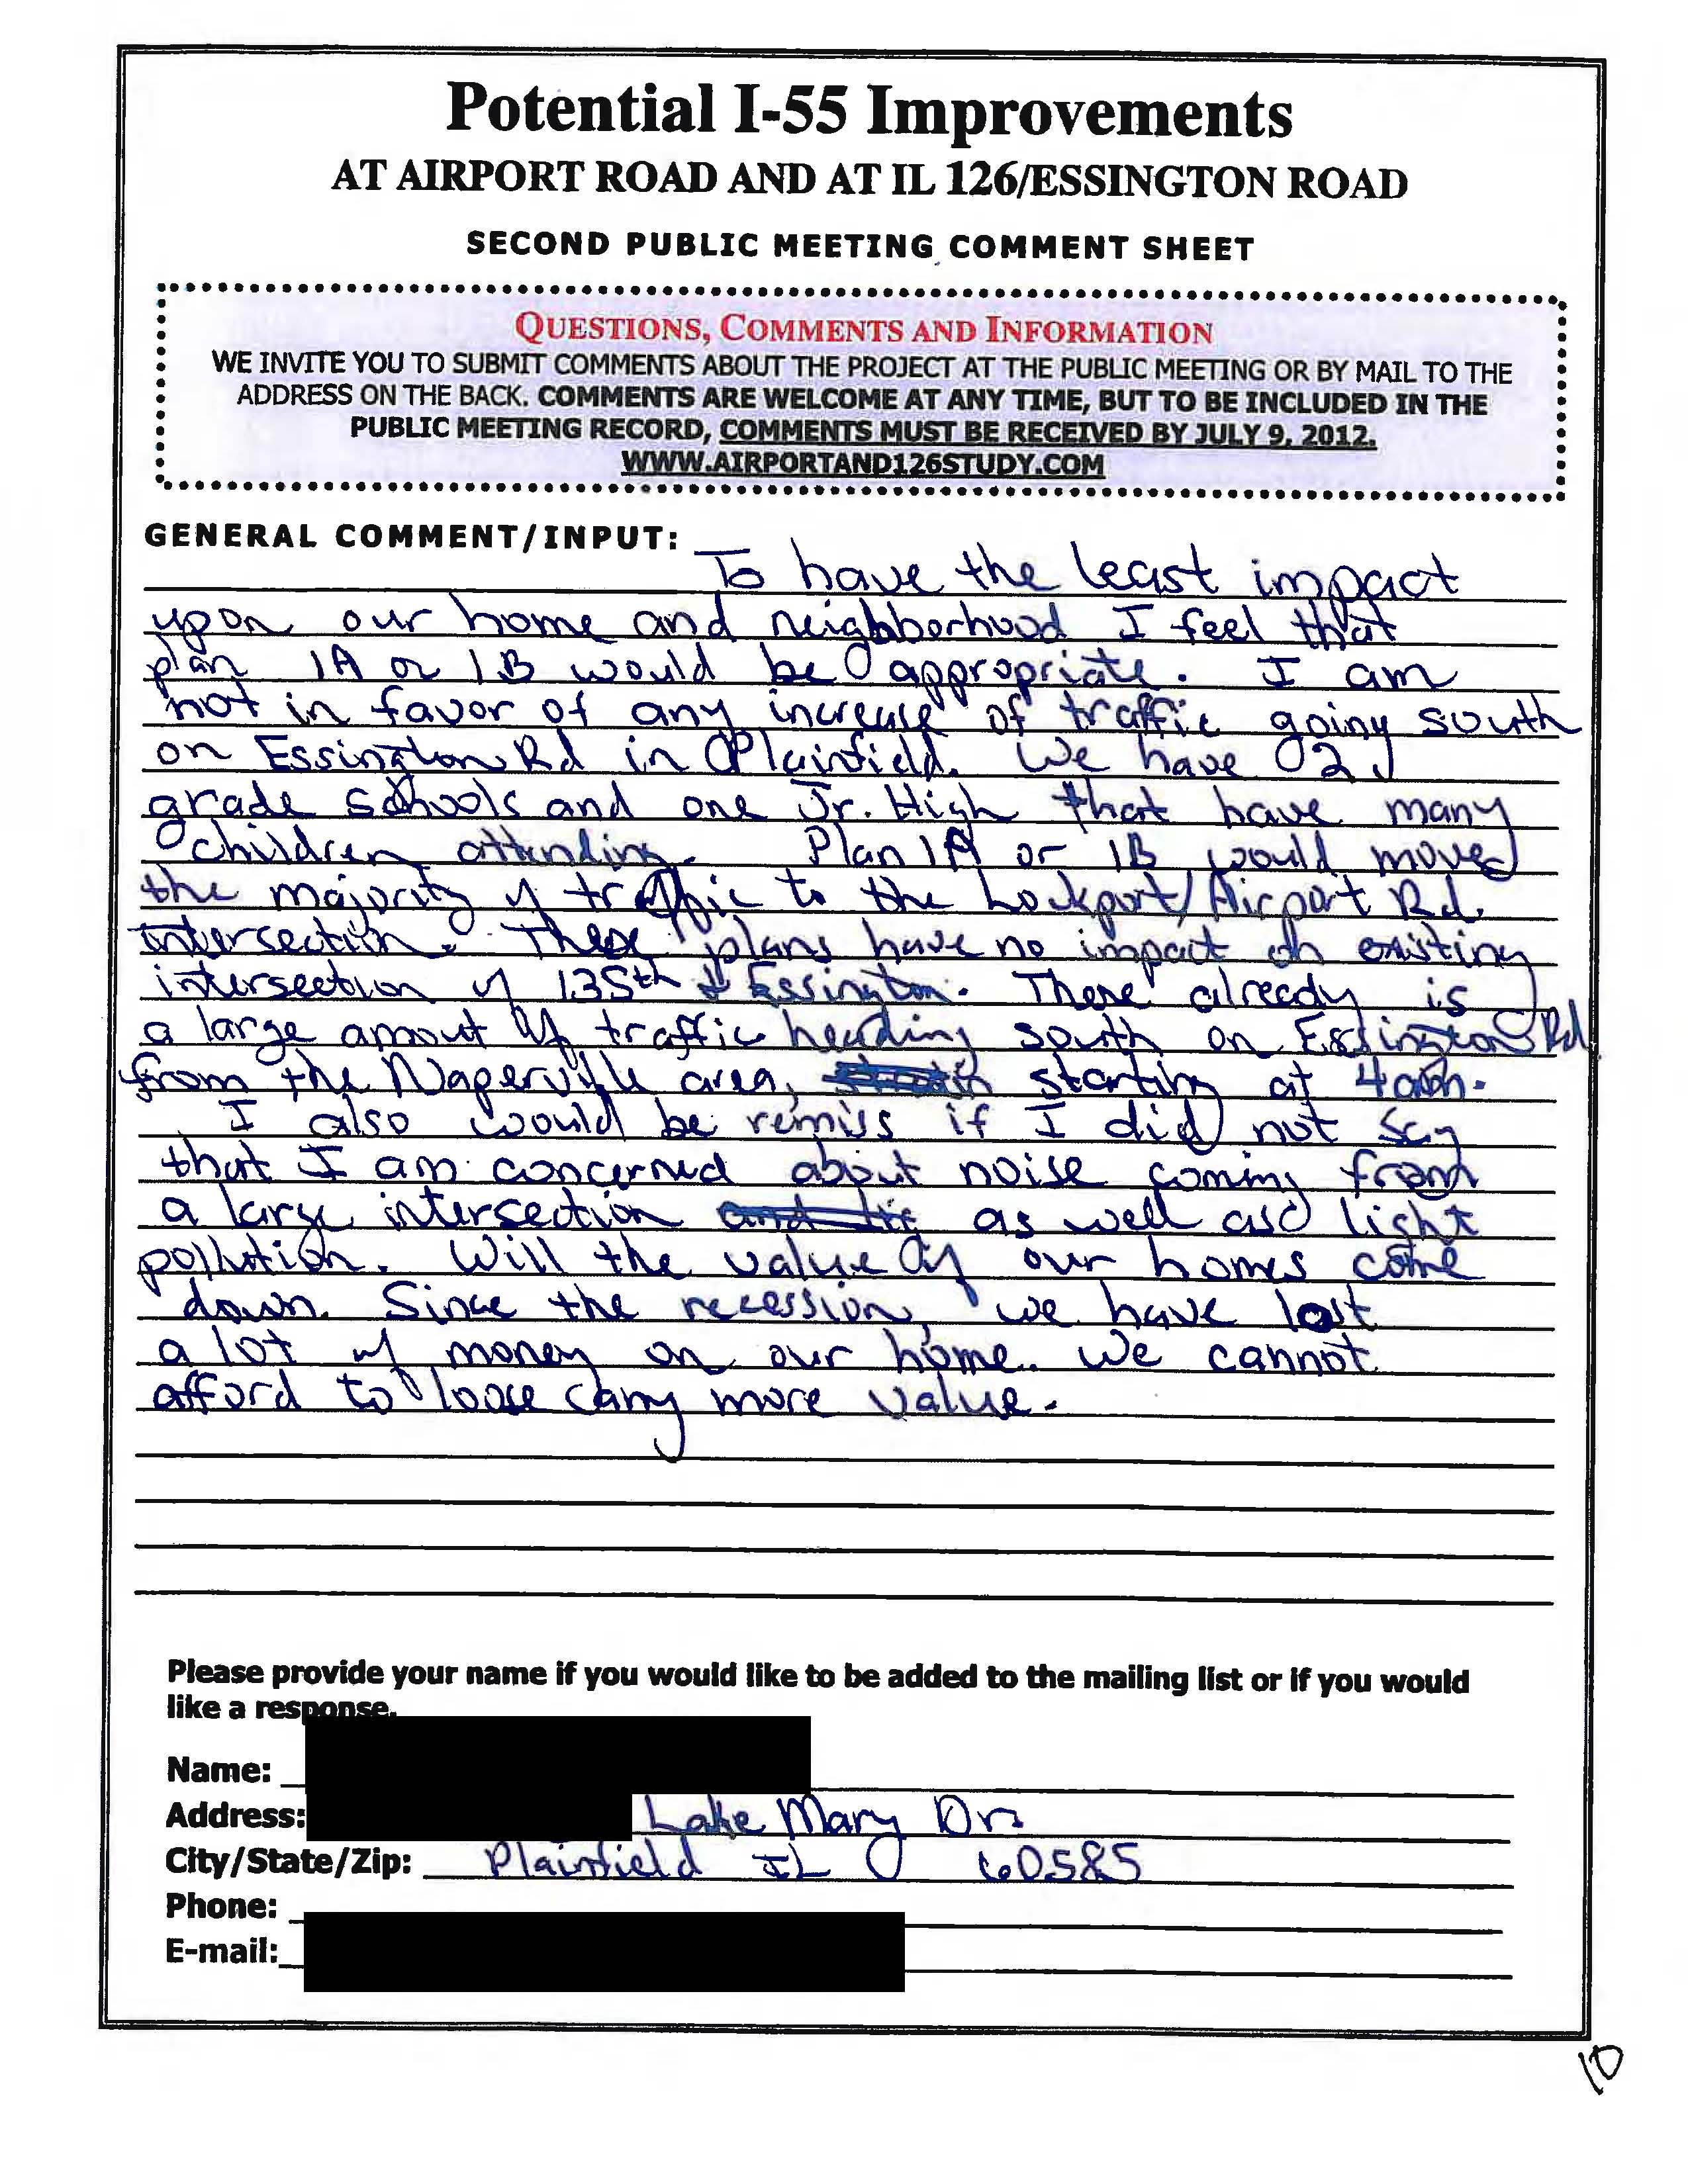 Potential I-55 Improvements
AT AIRPORT ROAD AND AT IL 126/ESSINGTON ROAD
SECOND PUBLIC MEETING COMMENT SHEET
QUESTIONS, COMMENTS AND INFORMATION
WE INVITE YOU TO SUBMIT COMMENTS ABOUT THE PROJECT AT THE PUBLIC MEETING OR BY MAIL TO THE
ADDRESS ON THE BACK. COMMENTS ARE WELCOME AT ANY TIME, BUT TO BE INCLUDED IN THE
PUBLIC MEETING RECORD, COMMENTS MUST BE RECEIVED BY JULY 9, 2012.
WWW.AIRPORTAND126STUDY.COM
GENERAL COMMENT/INPUT:
To have the least impact
upon our home and neighborhood I feel that
plan 1A or 1B would be appropriate. I am
not in favor of any increase of traffic going south
on Essington Rd in Plainfield. We have 2
grade schools and one Jr. High that have many
children attending. Plan 1A or 1B would moved
the majority of traffic to the Lockport/Airport Rd.
intersection. These plans have no impact on existing
intersection of 135th & Essington. There already is
a large amount of traffic heading south on Essington Rd
from the Naperville area, starting at 4am.
I also would be remiss if I did not say
that I am concerned about noise coming from
a large intersection as well as light
pollution. Will the value of our homes come
down. Since the recession, we have lost
a lot of money on our home. We cannot
afford to loose any more value.
Please provide your name if you would like to be added to the mailing list or if you would
like a response.
Name:
Address: Lake Mary Dr.
City/State/Zip: Plainfield IL 60585
Phone:
E-mail:
10